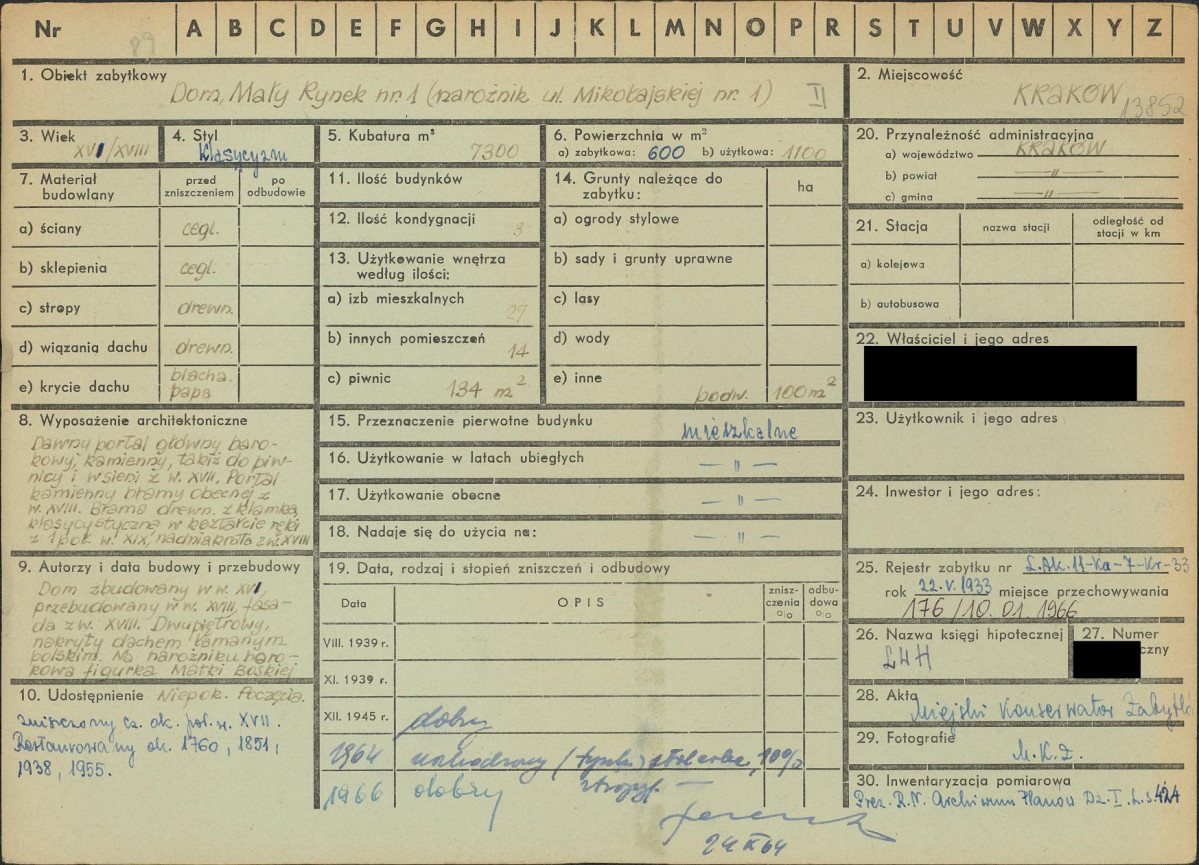 Nr 89 A B C D E F G H I J K L M N O P R S T U V W X Y Z
1. Obiekt zabytkowy
Dom, Mały Rynek nr. 1 (narożnik ul. Mikołajskiej nr. 1) II
2. Miejscowość
KRAKÓW
13852
3. Wiek
XVI/XVIII
4. Styl
klasycyzm
5. Kubatura m³
7300
6. Powierzchnia w m²
a) zabytkowa: 600 b) użytkowa: 1100
20. Przynależność administracyjna
a) województwo KRAKÓW
b) powiat —"—
c) gmina —"—
7. Materiał budowlany
przed zniszczeniem
po odbudowie
a) ściany cegl.
b) sklepienia cegl.
c) stropy drewn.
d) wiązania dachu drewn.
e) krycie dachu blacha. papa
11. Ilość budynków
12. Ilość kondygnacji 3
13. Użytkowanie wnętrza według ilości:
a) izb mieszkalnych 27
b) innych pomieszczeń 14
c) piwnic 134 m²
14. Grunty należące do zabytku:
ha
a) ogrody stylowe
b) sady i grunty uprawne
c) lasy
d) wody
e) inne podw. 100 m²
21. Stacja
nazwa stacji
odległość od stacji w km
a) kolejowa
b) autobusowa
22. Właściciel i jego adres
8. Wyposażenie architektoniczne
Dawny portal główny baro-
kowy, kamienny, takiż do piw-
nicy i w sieni z w. XVII. Portal
kamienny bramy obecnej z
w. XVIII. Brama drewn. z klamką
klasycystyczną w kształcie ręki
z 1 poł. w. XIX, nadniakrata z w. XVIII
15. Przeznaczenie pierwotne budynku mieszkalne
16. Użytkowanie w latach ubiegłych —"—
17. Użytkowanie obecne —"—
18. Nadaje się do użycia na: —"—
23. Użytkownik i jego adres
24. Inwestor i jego adres:
9. Autorzy i data budowy i przebudowy
Dom zbudowany w w. XVI,
przebudowany w w. XVIII, fasa-
da z w. XVIII. Dwupiętrowy,
nakryty dachem łamanym
polskim. Na narożniku baro-
kowa figurka Matki Boskiej
Niepok. Poczęcia.
10. Udostępnienie
zniszczony cz. ok. poł. w. XVII.
Restaurowany ok. 1760, 1851,
1938, 1955.
19. Data, rodzaj i stopień zniszczeń i odbudowy
Data
OPIS
znisz-czenia %
odbu-dowa %
VIII. 1939 r.
XI. 1939 r.
XII. 1945 r. dobry
1964 uszkodzony (tynk) stolarka, 10%
stropy. —
1966 dobry
24 IX 64
25. Rejestr zabytku nr L.Ak.11-Ka-7-Kr-33
rok 22.V.1933 miejsce przechowywania
176/10.01.1966
26. Nazwa księgi hipotecznej
LWH
27. Numer
czny
28. Akta
Miejski Konserwator Zabytków
29. Fotografie
M.K.Z.
30. Inwentaryzacja pomiarowa
Prez. R.N. Archiwum Planów Dz. I. L.s. 424